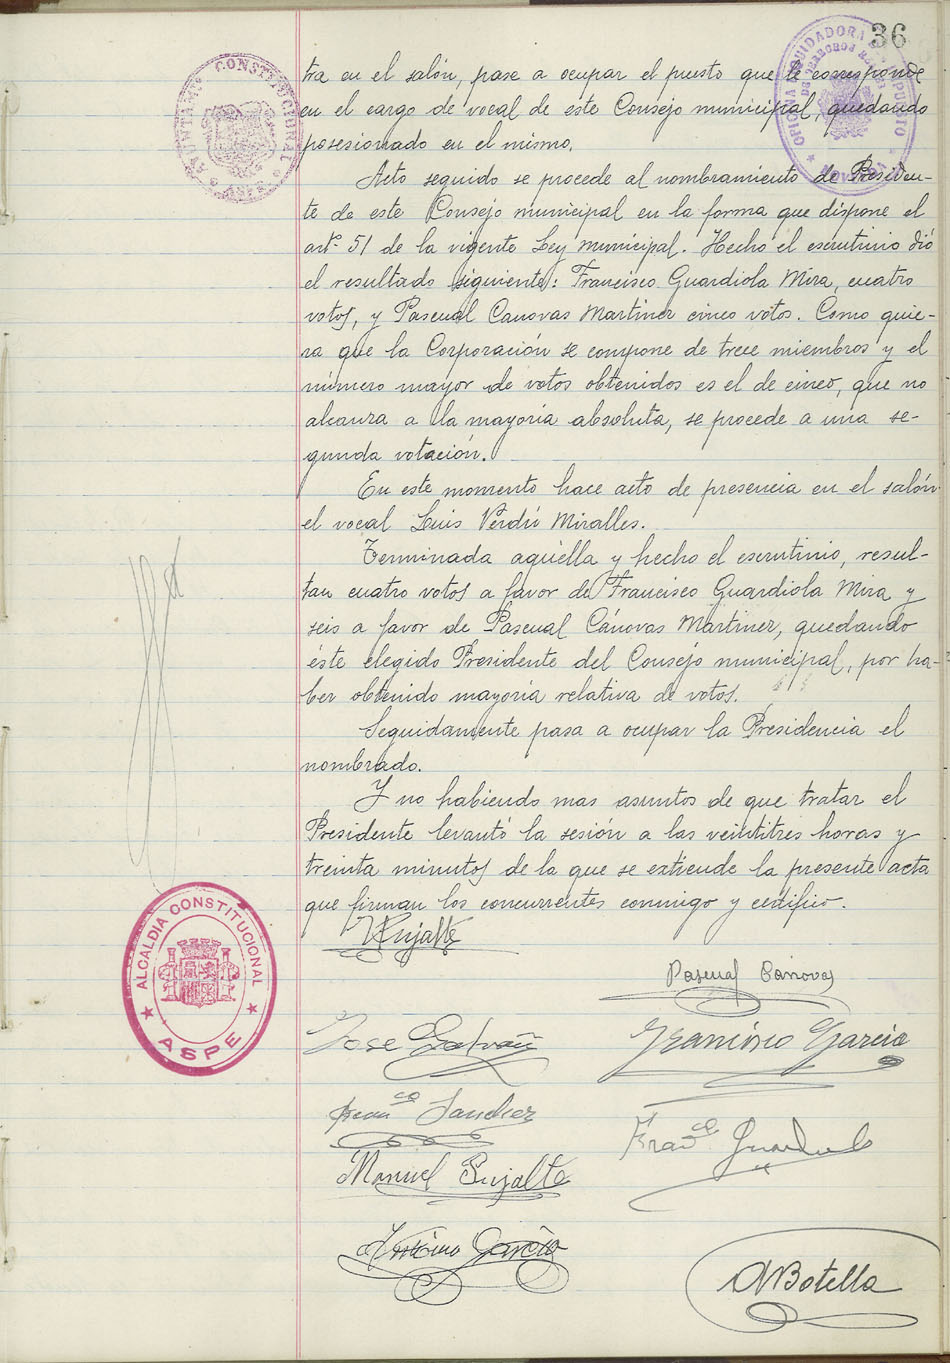 36
AYUNTAMTº CONSTITUCIONAL
ASPE
OFICINA LIQUIDADORA DEL IMPUESTO
DE DERECHOS REALES
NOVELDA
tra en el salón, pase a ocupar el puesto que le corresponde
en el cargo de vocal de este Consejo municipal, quedando
posesionado en el mismo.
Acto seguido se procede al nombramiento de Presiden-
te de este Consejo municipal en la forma que dispone el
artº 51 de la vigente Ley municipal. Hecho el escrutinio dió
el resultado siguiente: Francisco Guardiola Mira, cuatro
votos, y Pascual Canovas Martinez cinco votos. Como quie-
ra que la Corporación se compone de trece miembros y el
número mayor de votos obtenidos es el de cinco, que no
alcanza a la mayoria absoluta, se procede a una se-
gunda votación.
En este momento hace acto de presencia en el salón
el vocal Luis Verdú Miralles.
Terminada aquella y hecho el escrutinio, resul-
tan cuatro votos a favor de Francisco Guardiola Mira y
seis a favor de Pascual Cánovas Martinez, quedando
éste elegido Presidente del Consejo municipal, por ha-
ber obtenido mayoria relativa de votos.
Seguidamente pasa a ocupar la Presidencia el
nombrado.
Y no habiendo mas asuntos de que tratar el
Presidente levantó la sesión a las veintitres horas y
treinta minutos de la que se extiende la presente acta
que firman los concurrentes conmigo y certifico.
ALCALDIA CONSTITUCIONAL
ASPE
Pujalte
Pascual Cánovas
Jose Galvañ
Francisco Garcia
Francº Sanchez
Franco Guardiola
Manuel Pujalte
Antonio García
A Botella